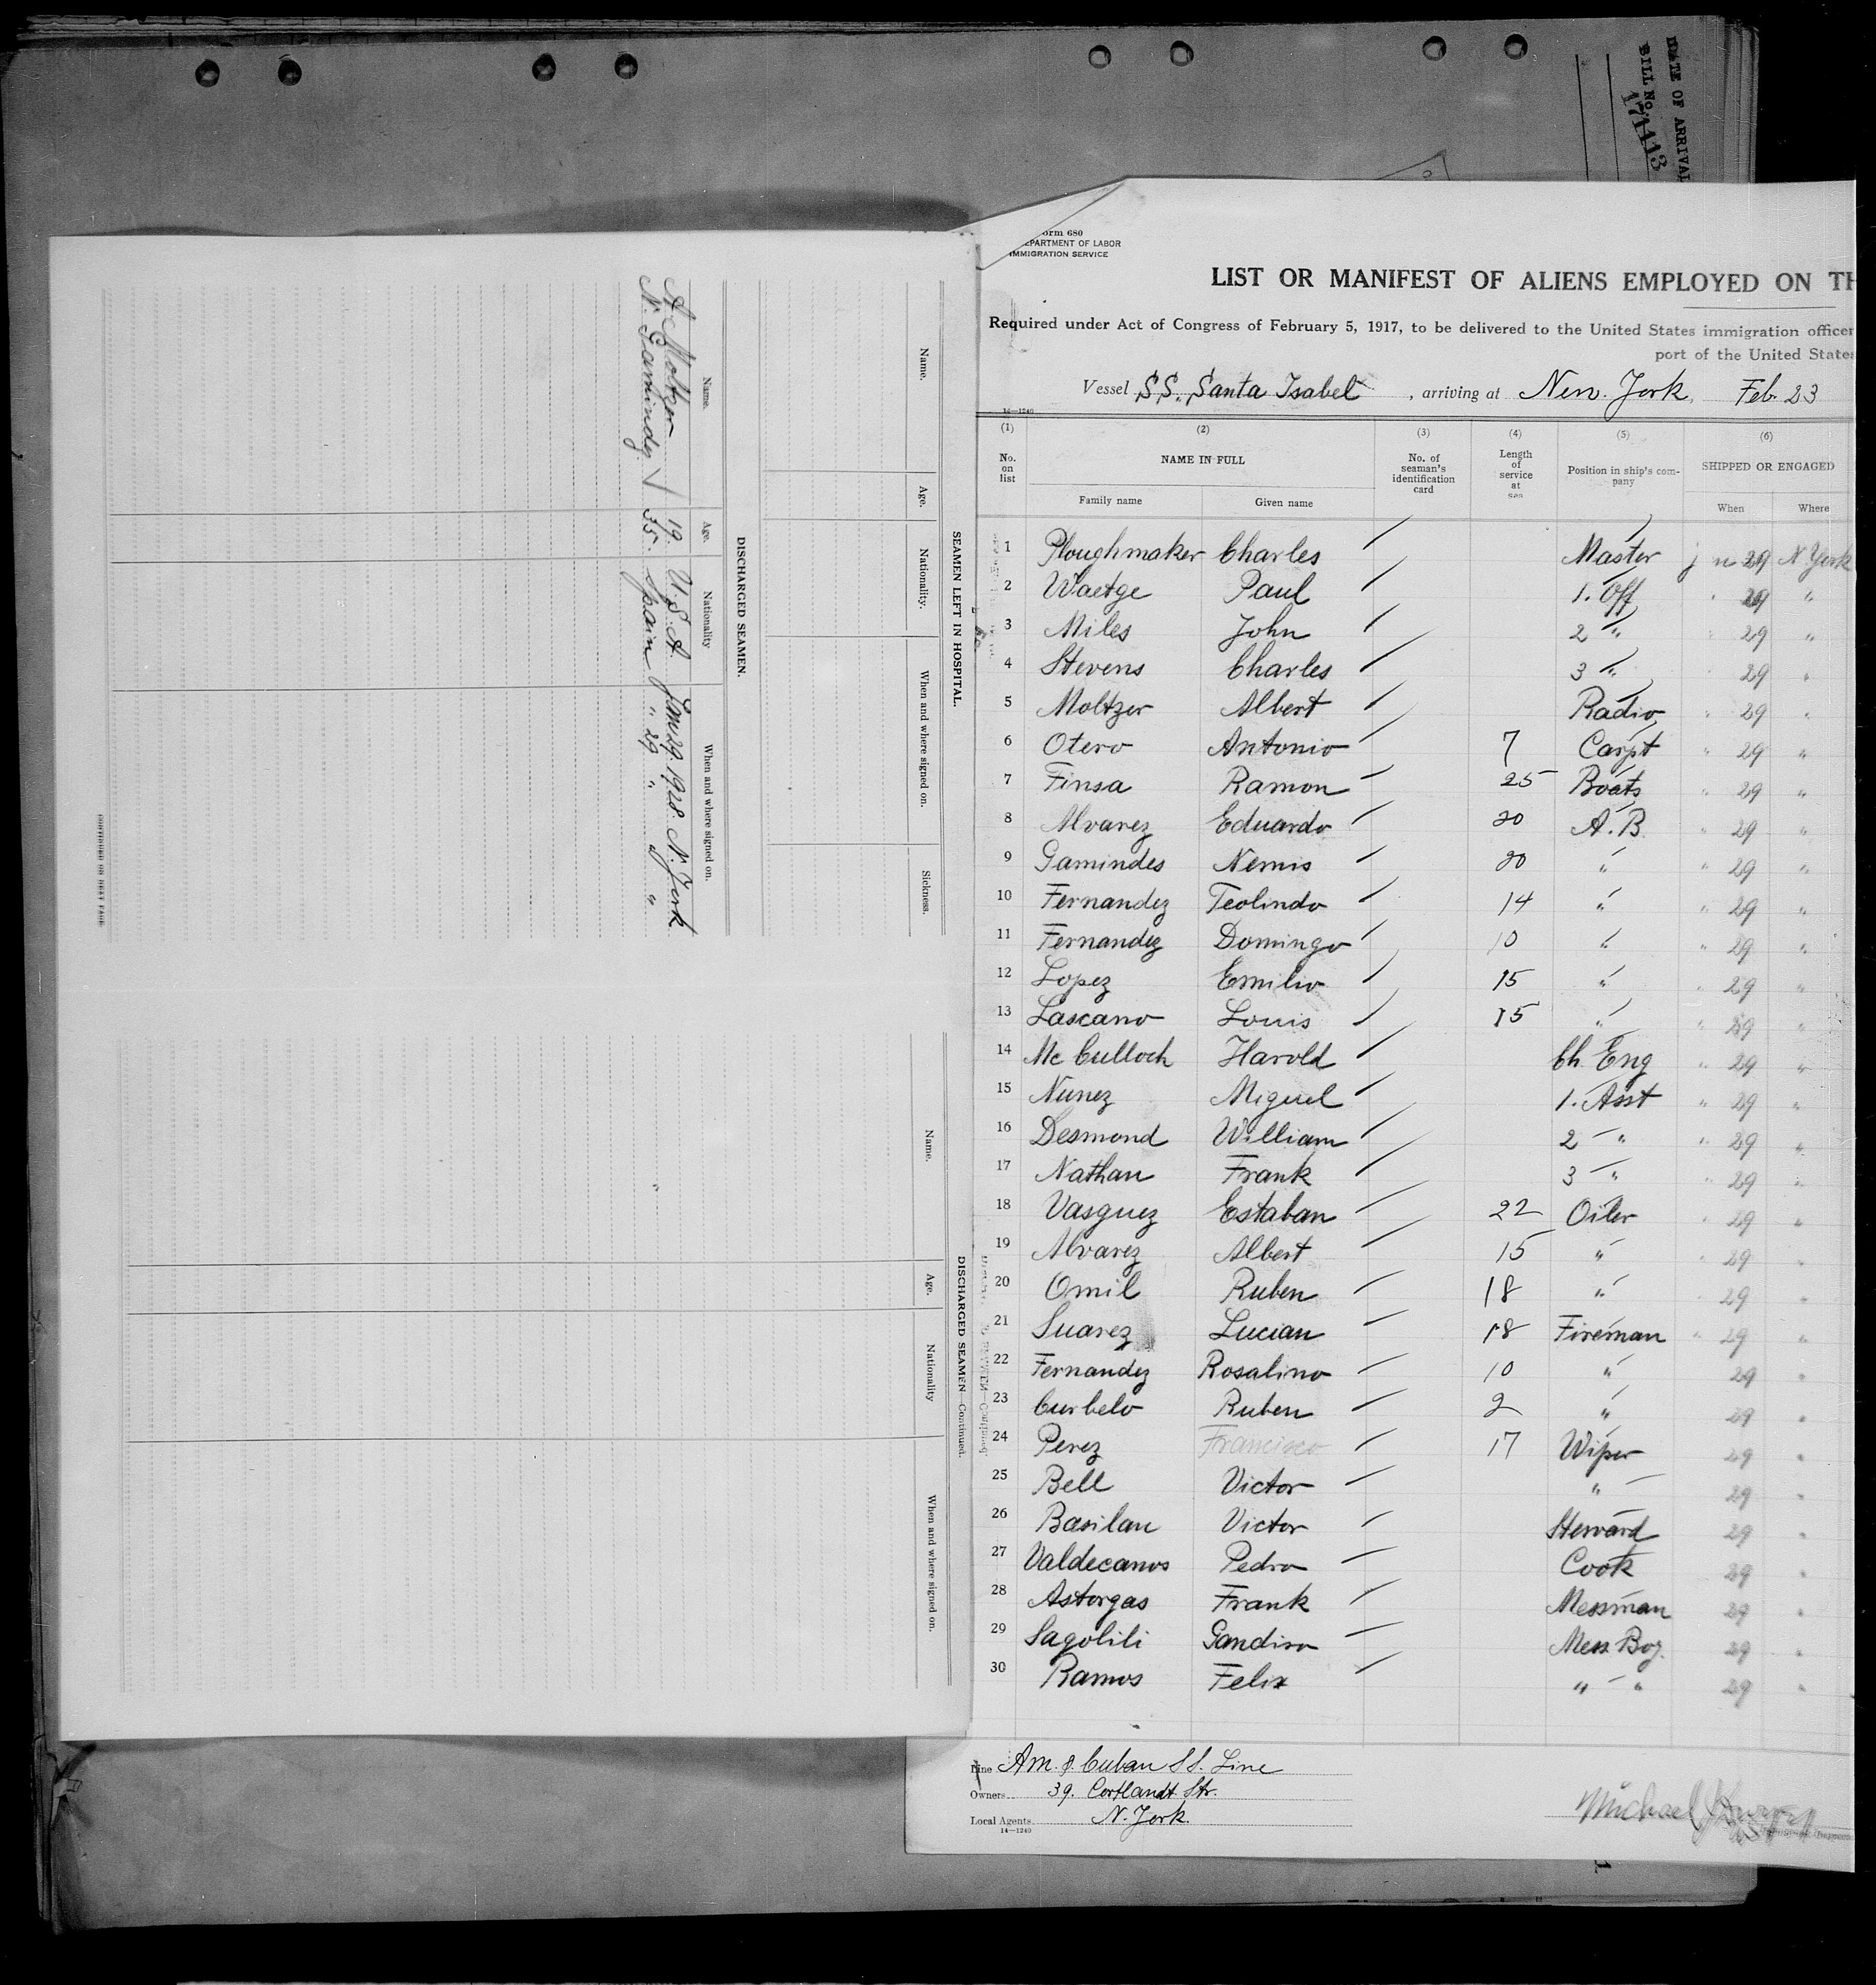 DATE OF ARRIVAL
BILL NO.
SEAMEN LEFT IN HOSPITAL.
Name. Age. Nationality. When and where signed on. Sickness.
DISCHARGED SEAMEN.
Name. Age. Nationality When and where signed on.
A. Moltzer 19. U.S.A. Jan 29. 1928. N. York
N. Gamindez √ 35. Spain " 29 " "
CONTINUED ON NEXT PAGE
DISCHARGED SEAMEN—Continued.
Name. Age. Nationality When and where signed on.
orm 680
EPARTMENT OF LABOR
IMMIGRATION SERVICE
LIST OR MANIFEST OF ALIENS EMPLOYED ON TH
Required under Act of Congress of February 5, 1917, to be delivered to the United States immigration officer
port of the United States
Vessel S.S. Santa Isabel , arriving at New. York, Feb. 23
14—1240
(1) (2) (3) (4) (5) (6)
No. on list NAME IN FULL No. of seaman's identification card Length of service at sea Position in ship's company SHIPPED OR ENGAGED
Family name Given name When Where
1 Ploughmaker Charles Master 29 N. York
2 Waetge Paul 1. Off 29 "
3 Miles John 2 " 29 "
4 Stevens Charles 3 " 29 "
5 Moltzer Albert Radio 29 "
6 Otero Antonio 7 Carpt " 29 "
7 Finsa Ramon 25 Boats " 29 "
8 Alvarez Eduardo 20 A.B. " 29 "
9 Gamindes Nemis 20 " " 29 "
10 Fernandez Teolindo 14 " " 29 "
11 Fernandez Domingo 10 " " 29 "
12 Lopez Emilio 15 " " 29 "
13 Lascano Louis 15 " " 29 "
14 Mc Culloch Harold Ch. Eng " 29 "
15 Nunez Miguel 1. Asst " 29 "
16 Desmond William 2 " " 29 "
17 Nathan Frank 3 " " 29 "
18 Vasguez Estaban 22 Oiler " 29 "
19 Alvarez Albert 15 " 29 "
20 Omil Ruben 18 " 29 "
21 Suarez Lucian 18 Fireman " 29 "
22 Fernandez Rosalino 10 " 29 "
23 Curbelo Ruben 2 " 29 "
24 Perez Francisco 17 Wiper 29 "
25 Bell Victor " 29 "
26 Basilan Victor Steward 29 "
27 Valdecanos Pedro Cook 29 "
28 Astorgas Frank Messman 29 "
29 Sagolili Gandiso Mess Boy. 29 "
30 Ramos Felix " " 29 "
Line Am. & Cuban S.S. Line
Owners 39. Cortlandt Str.
Local Agents N. York.
14—1240
Michael